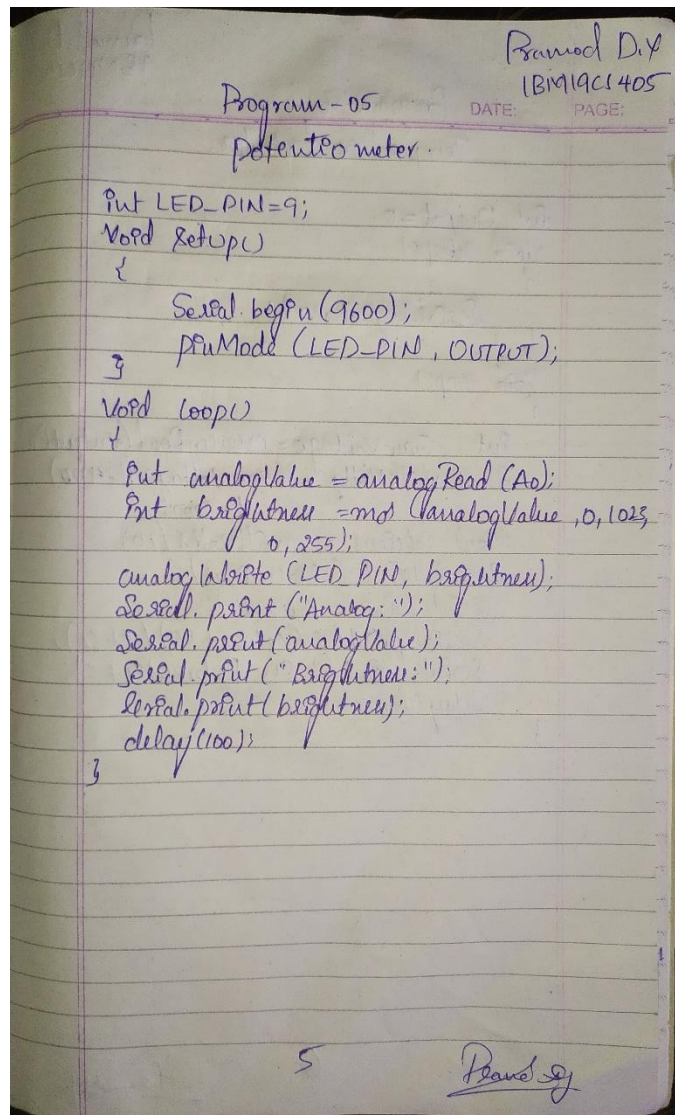 Pramod D.Y
1BM19CS405
Program-05
DATE: PAGE:
Potentiometer.
int LED_PIN=9;
Void setup()
{
Serial.begin(9600);
pinMode (LED_PIN, OUTPUT);
}
Void loop()
{
int analogValue = analogRead (A0);
int brightness = map (analogValue, 0, 1023,
0, 255);
analogWrite (LED_PIN, brightness);
Serial.print ("Analog: ");
Serial.print(analogValue);
Serial.print(" Brightness:");
Serial.print(brightness);
delay(100);
}
5